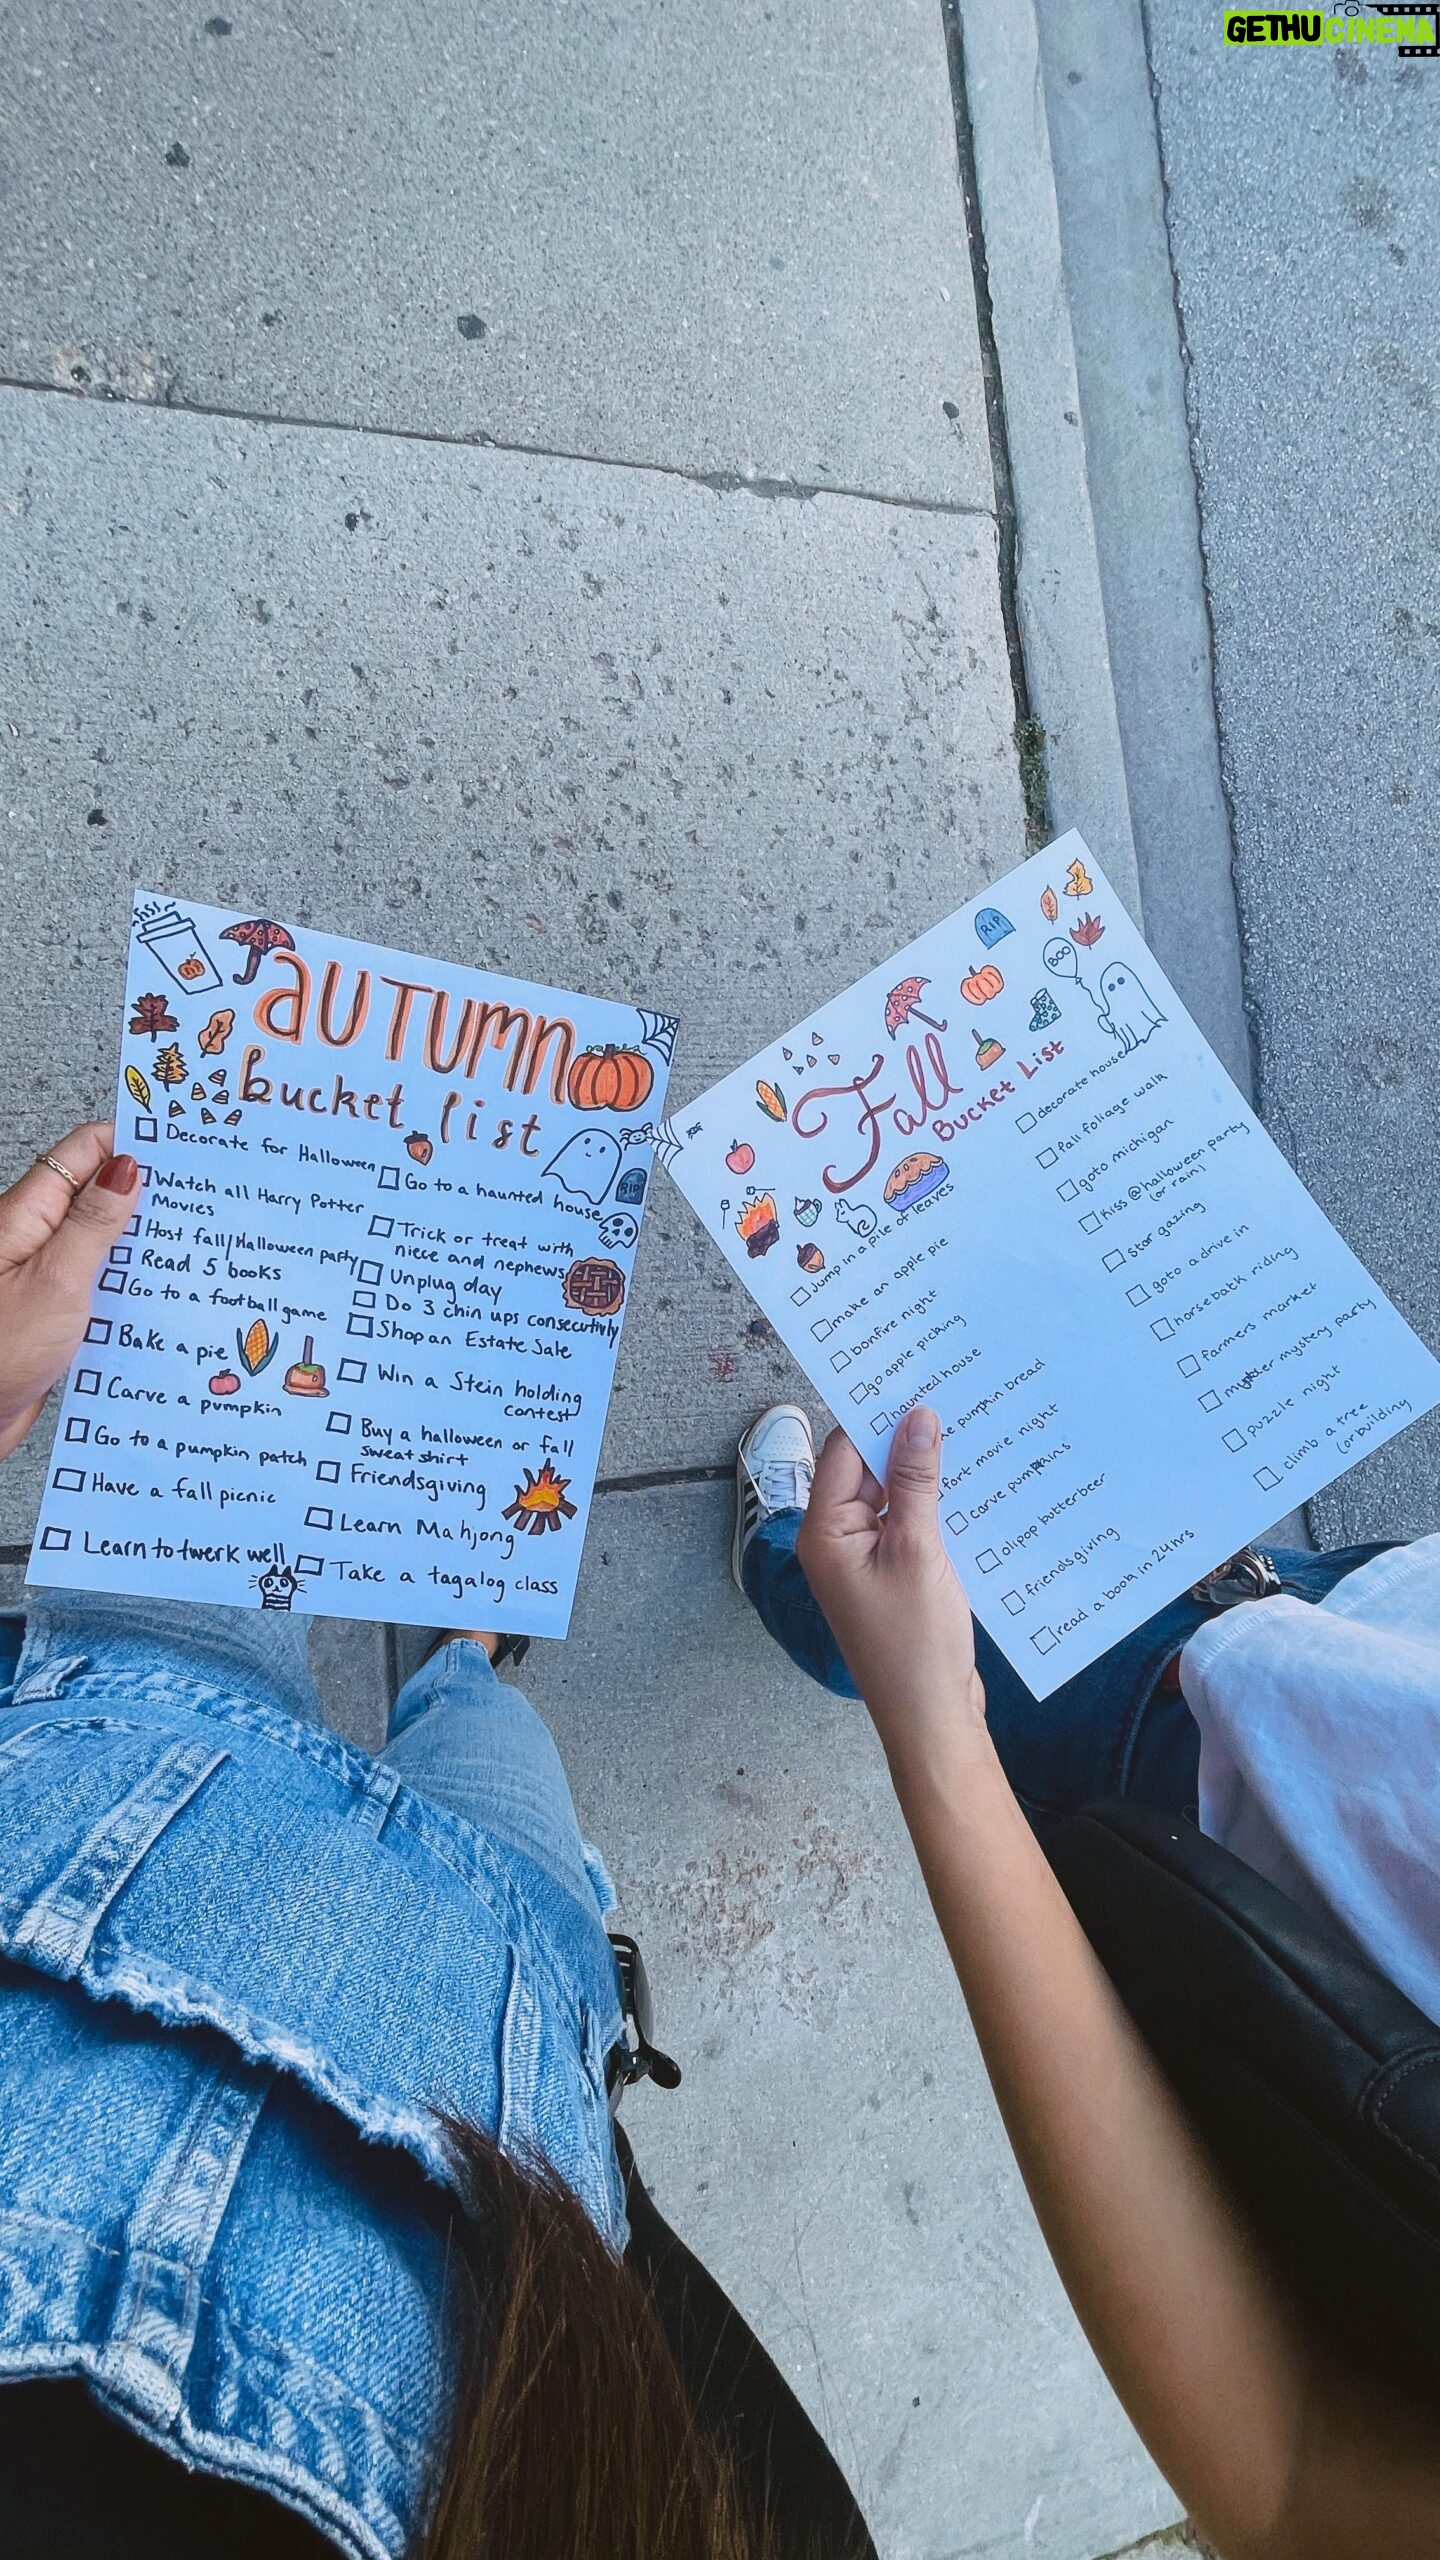 GETHUCINEMA
AUTUMN
Bucket list
Decorate for Halloween
Watch all Harry Potter
Movies
Host fall/Halloween party
Read 5 books
Go to a football game
Bake a pie
Carve a pumpkin
Go to a pumpkin patch
Have a fall picnic
Learn to twerk well
Go to a haunted house
Trick or treat with
niece and nephews
Unplug day
Do 3 chin ups consecutivly
Shop an Estate Sale
Win a Stein holding
contest
Buy a halloween or fall
sweatshirt
Friendsgiving
Learn Mahjong
Take a tagalog class
RIP
RIP
BOO
Fall
Bucket List
Jump in a pile of leaves
make an apple pie
bonfire night
go apple picking
haunted house
pumpkin bread
fort movie night
carve pumpkins
olipop butterbeer
friendsgiving
read a book in 24hrs
decorate house
fall foliage walk
goto michigan
kiss @ halloween party
(or rain)
star gazing
goto a drive in
horseback riding
farmers market
murder mystery party
puzzle night
climb a tree
(or building)